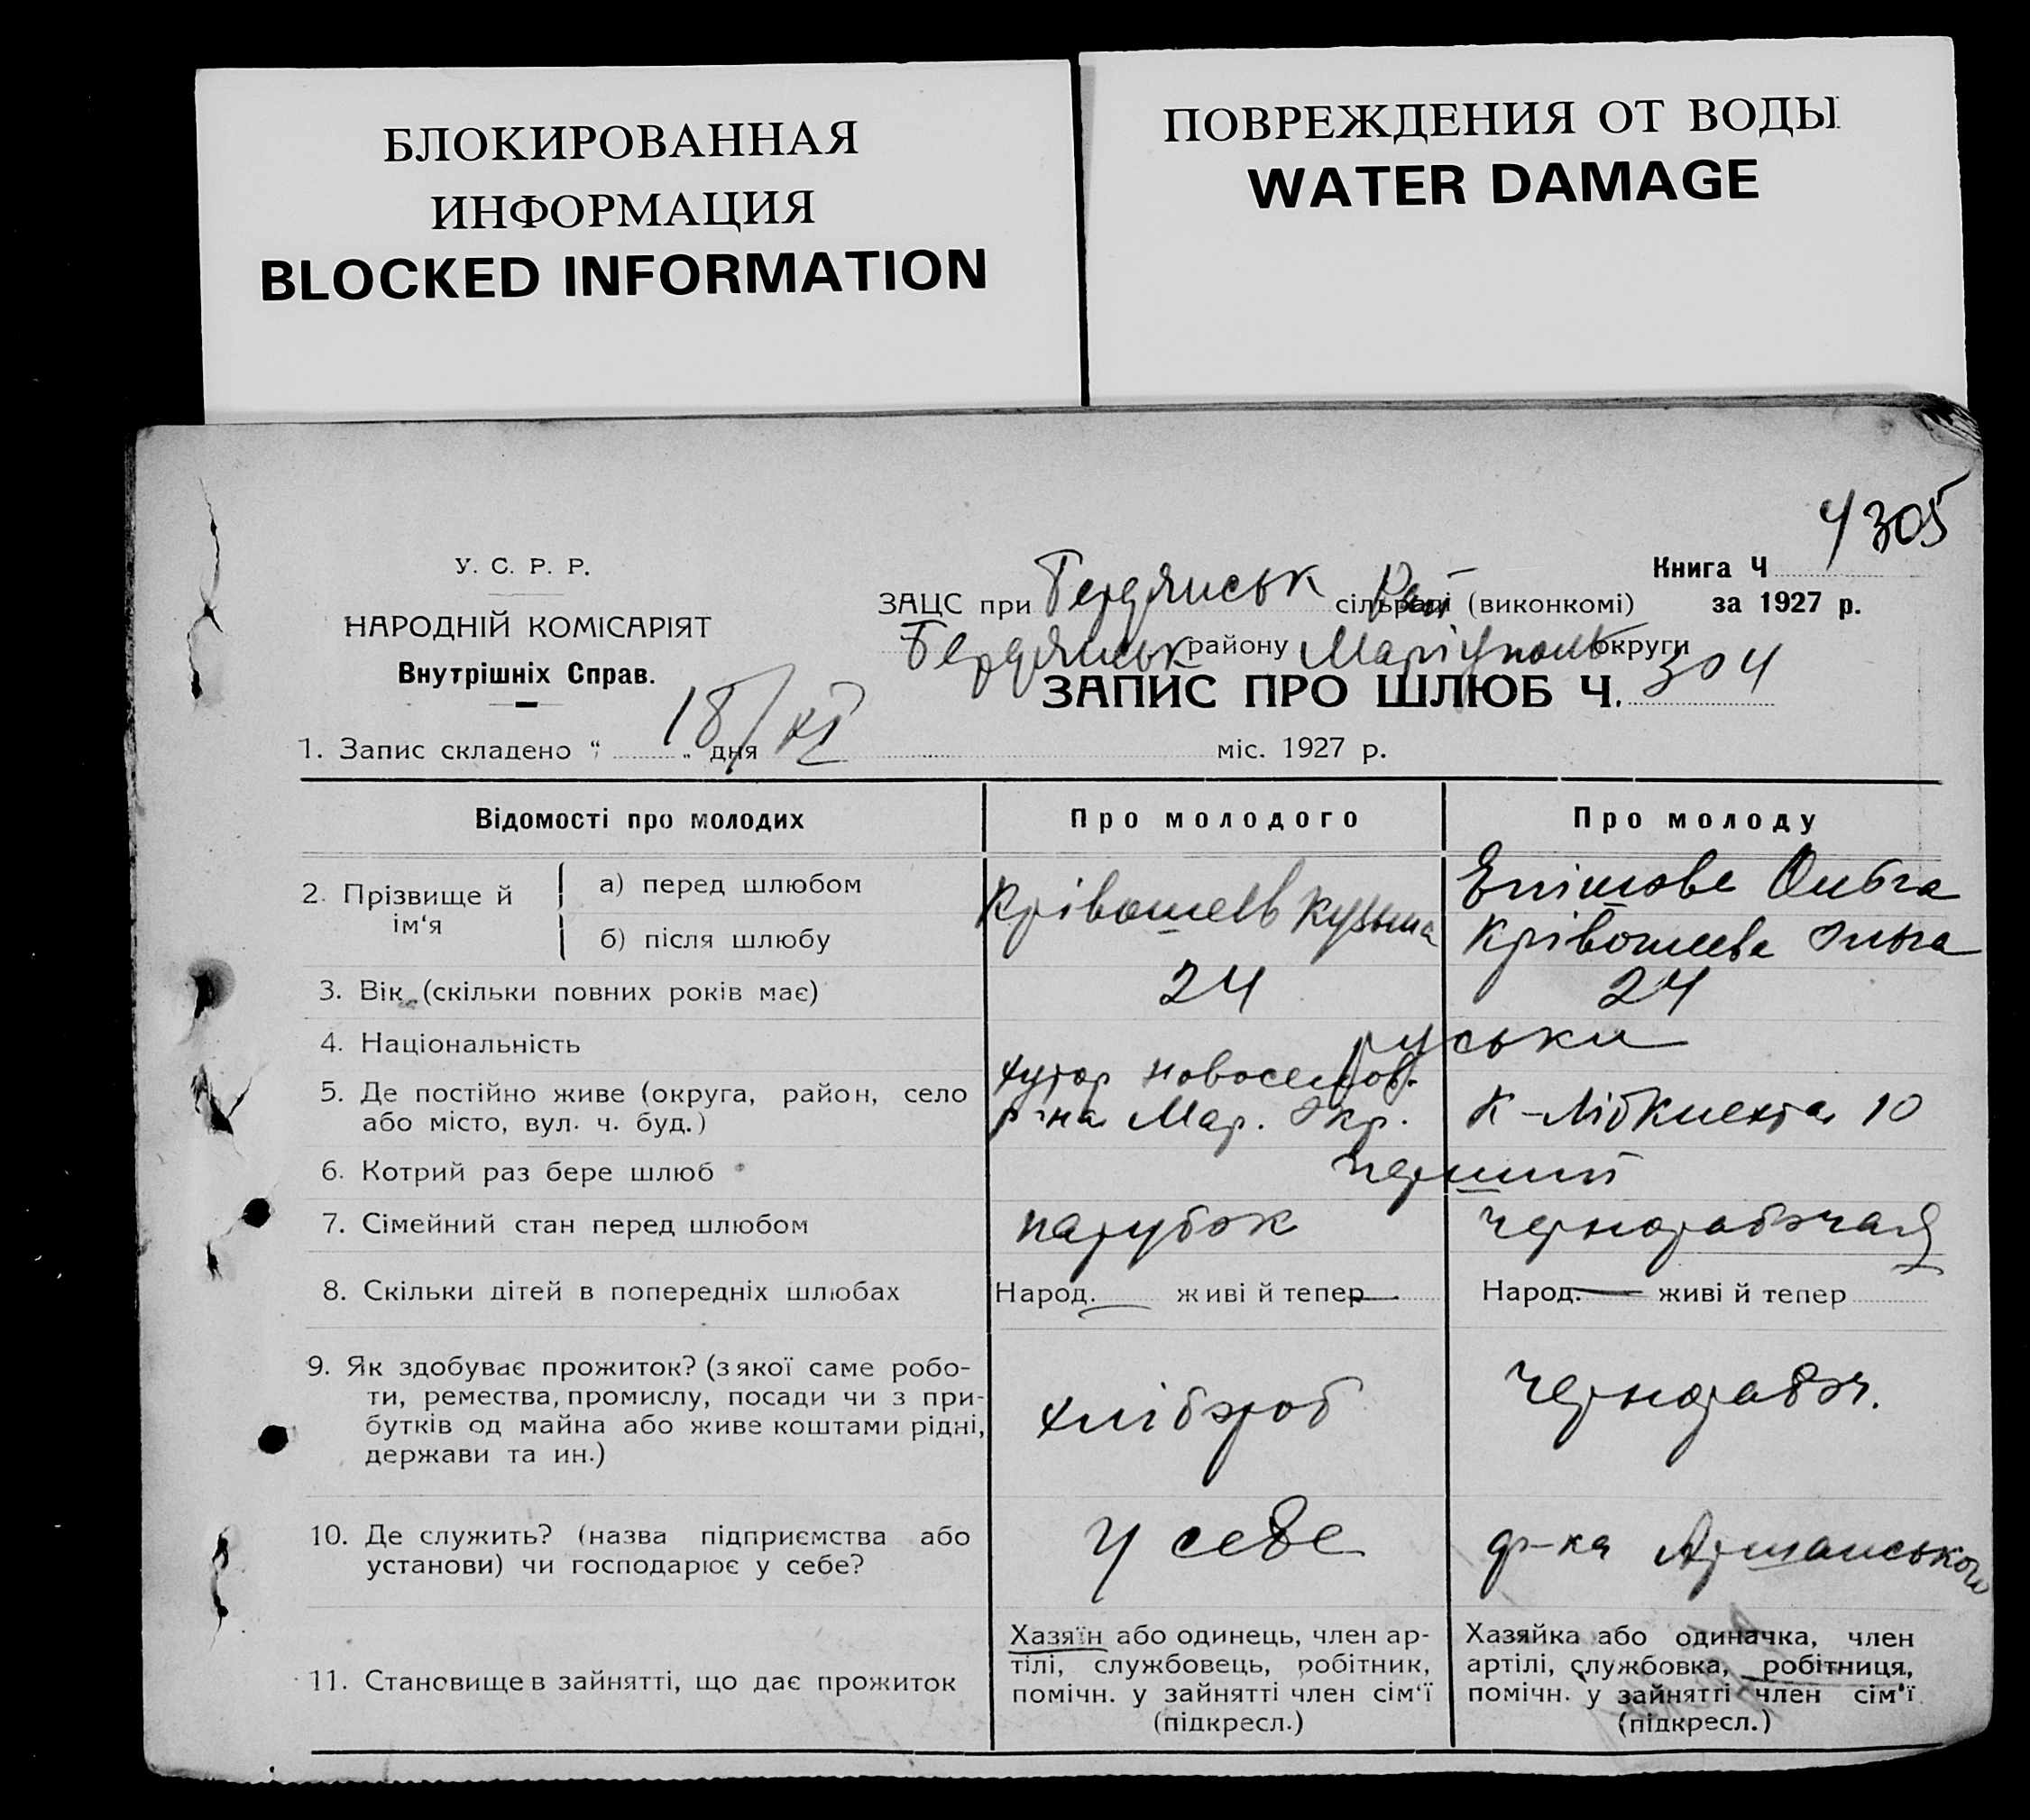 БЛОКИРОВАННАЯ
ИНФОРМАЦИЯ
BLOCKED INFORMATION
ПОВРЕЖДЕНИЯ ОТ ВОДЫ
WATER DAMAGE
305
У. С. Р. Р.
НАРОДНІЙ КОМІСАРІЯТ
Внутрішніх Справ.
Книга Ч
за 1927 р.
ЗАЦС при Бердянськ сільраді (виконкомі)
Бердянськ району Маріуполь округи
ЗАПИС ПРО ШЛЮБ Ч. 304
1. Запис складено “ 18/XI „ дня міс. 1927 р.
Відомості про молодих Про молодого Про молоду
2. Прізвище й ім‘я
а) перед шлюбом Крівошеев Кузьма Епішова Ольга
б) після шлюбу Крівошеева Ольга
3. Вік (скільки повних років має) 24 24
4. Національність руськи
5. Де постійно живе (округа, район, село або місто, вул. ч. буд.)
хутор Новоселов.
р-на Мар. Окр. К-Лібкнехта 10
6. Котрий раз бере шлюб перший
7. Сімейний стан перед шлюбом парубок чернорабочая
8. Скільки дітей в попередніх шлюбах Народ. живі й тепер Народ. живі й тепер
9. Як здобуває прожиток? (з якої саме робо-
ти, ремества, промислу, посади чи з при-
бутків од майна або живе коштами рідні,
держави та ин.)
хлібороб чернорабоч.
10. Де служить? (назва підприємства або
установи) чи господарює у себе?
у себе ф-ка
11. Становище в зайнятті, що дає прожиток
Хазяїн або одинець, член ар-
тілі, службовець, робітник,
помічн. у зайнятті член сім‘ї
(підкресл.)
Хазяйка або одиначка, член
артілі, службовка, робітниця,
помічн. у зайнятті член сім‘ї
(підкресл.)